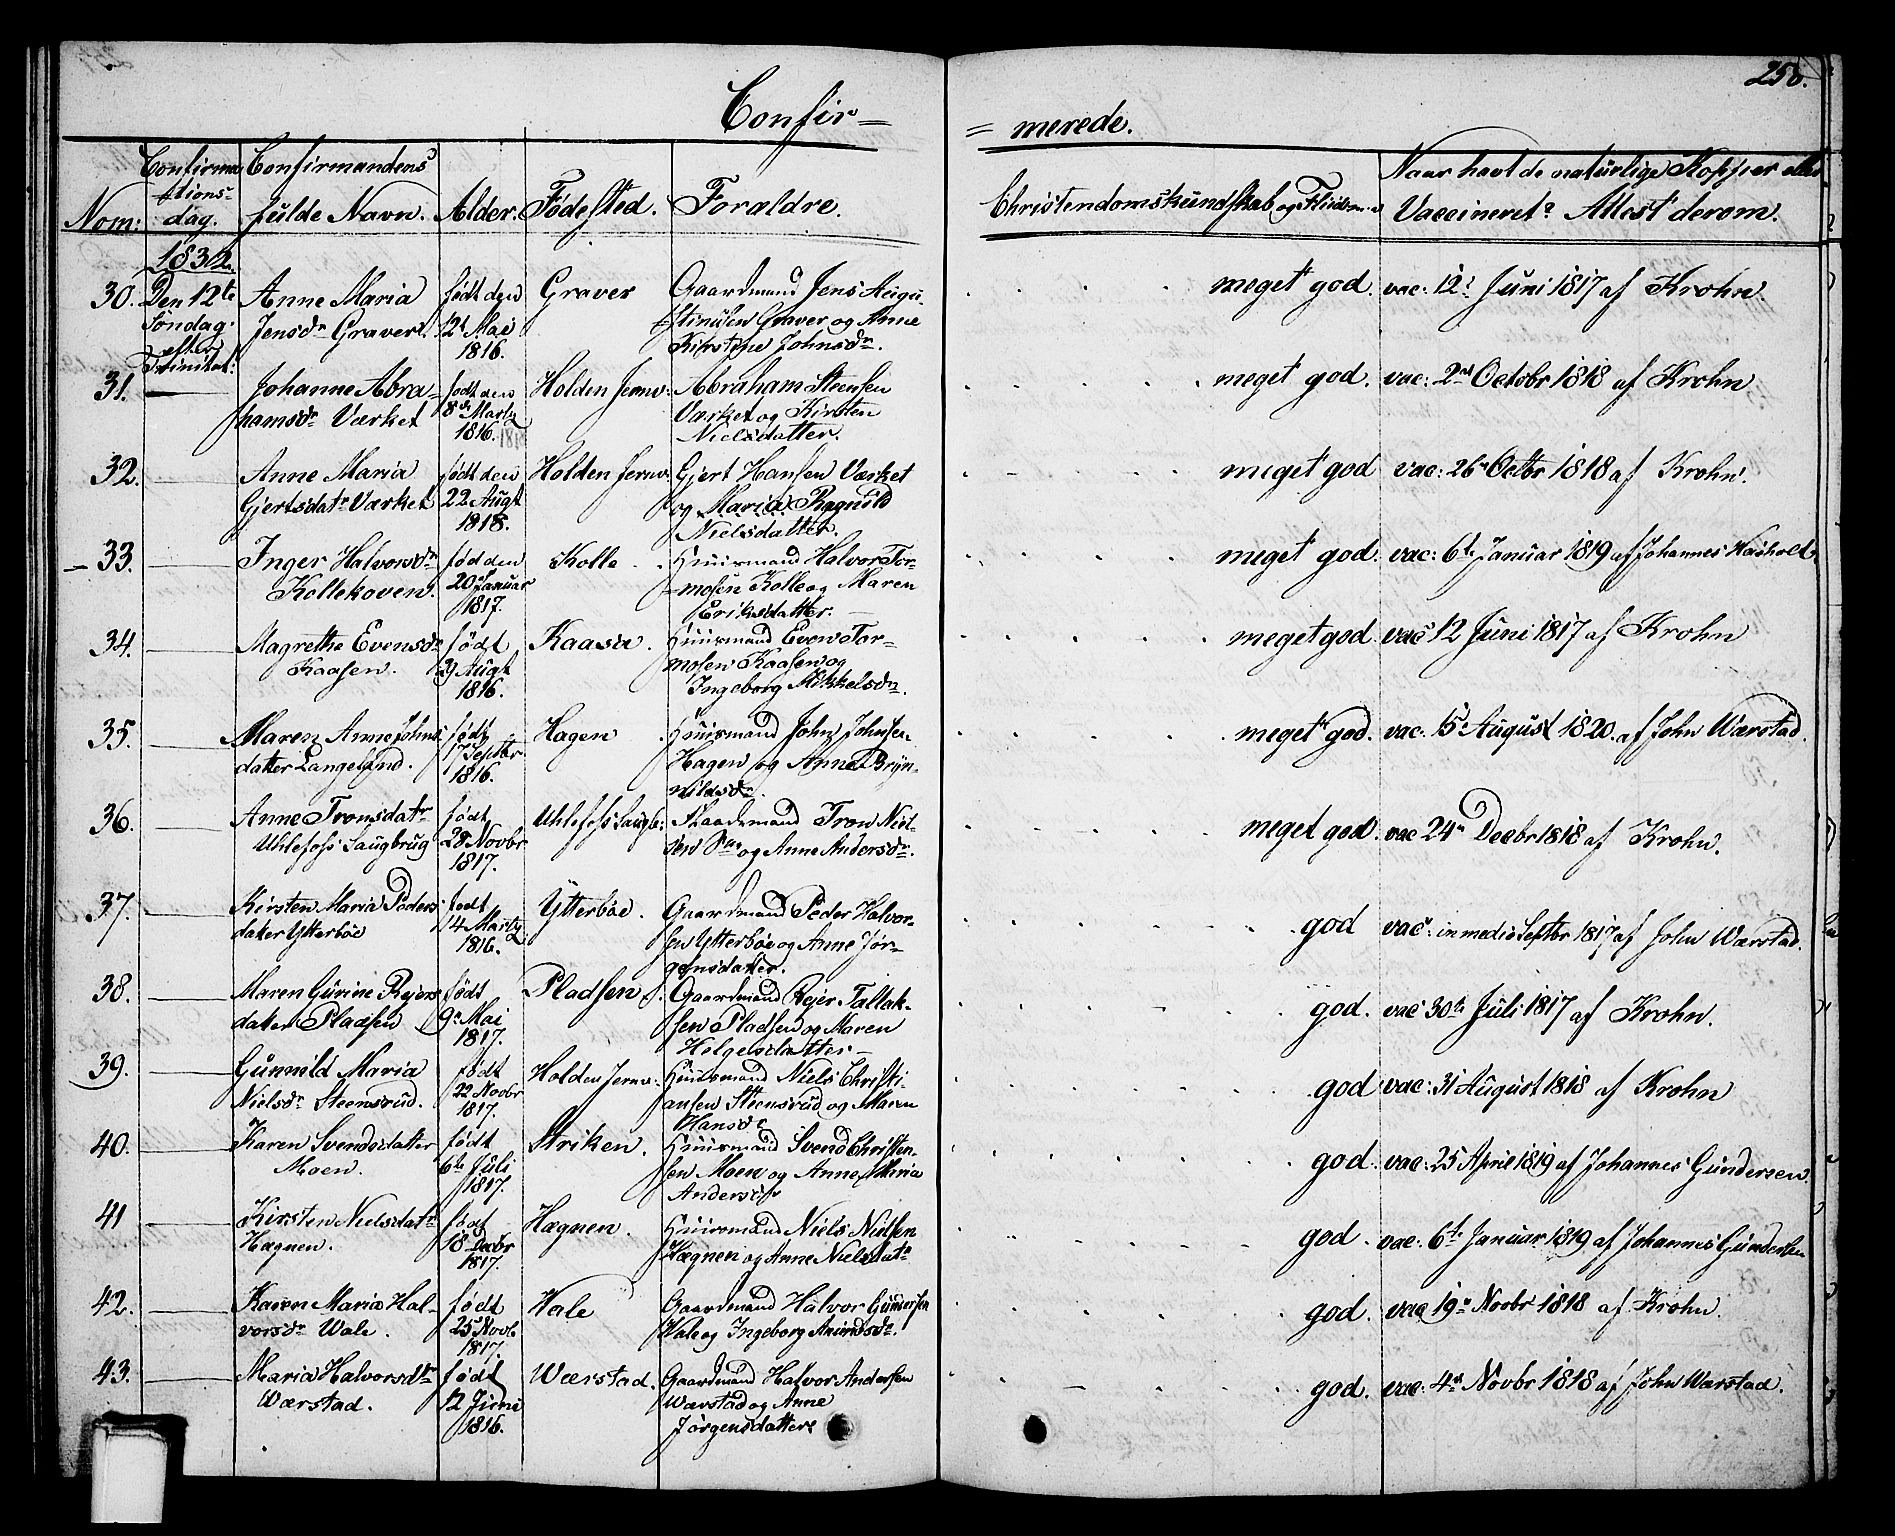 258.
Confir=
= merede.
Nom:
Confirma
tions-
dag.
Confirmandens
fulde Navn.
Alder.
Fødested.
Forældre.
Christendomskundskab og Flid
Naar havt de naturlige Kopper eller
Vaccineret? Attest derom.
1832.
30. Den 12te
Søndag
efter
Trinitat:
Anne Maria
Jensdr Graver
født den
12t Mai
1816.
Graver
Gaardmand Jens Augu-
stinusen Graver og Anne
Kirstine Johnsdr.
meget god. vac: 12t Juni 1817 af Krohn.
31.
Johanne Abra-
hamsdr Værket
født den
8de Marty
1816.
Holden Jernv:
Abraham Steensen
Værket og Kirsten
Nielsdatter.
meget god. vac: 2n Octobr 1818 af Krohn
32.
Anne Maria
Gjertsdatr Værket
født den
22 Augt
1818.
Holden Jernv:
Gjert Hansen Værket
og Maria Ragnild
Nielsdatter.
meget god vac: 26n Octbr 1818 af Krohn.
33.
Inger Halvorsdr
Kollekoven.
fød den
20 Januar
1817.
Kolle
Huusmand Halvor Tor-
mosen Kolle og Maren
Eriksdatter.
meget god. vac: 6te Januar 1819 af Johannes
34.
Magrethe Evensdr
Kaasen.
født
29 Augt
1816.
Kaasa
Huusmand Even Tor-
mosen Kaasen og
Ingeborg Mikkelsdr.
meget god. vac: 12 Juni 1817 af Krohn
35.
Maren Anne Johns
datter Langelund.
født
17 Septbr
1816.
Hagen
Huusmand John Johnsen
Hagen og Anne Bryn-
nildsdr.
meget god. vac: 15 August 1820. af John Wærstad.
36.
Anne Tronsdatr
Uhlefoss Saugbrug
født
28 Novbr
1817.
Uhlefoss Saugb:
Plaadsmand Tron Niel-
sen og Anne Andersdr.
meget god. vac 24n Decbr 1818 af Krohn.
37.
Kirsten Maria Peders
datter Ytterbøe
født
14 Marty
1816.
Ytterbøe.
Gaardmand Peder Halvor-
sen Ytterbøe og Anne Jør-
gensdatter.
god vac: in medio Septbr 1817 af John Wærstad.
38.
Maren Gurine Rejers
datter Pladsen
født
9n Mai
1817.
Pladsen
Gaardmand Rejer Tallak-
sen Pladsen og Maren
Helgesdatter
god. vac 30te Juli 1817 af Krohn.
39.
Gunnild Maria
Nielsdr Steensrud.
født
22 Novbr
1817.
Holden Jernv:
Huusmand Niels Christi-
ansen Steensrud og Maren
Hansdr
god vac: 31 August 1818 af Krohn
40.
Karen Svendsdatter
Moen.
født
6te Juli
1817.
Striken.
Huusmand Svend Christen-
sen Moen og Anne Maria
Andersdr
god. vac: 25 April 1819 af Johannes Gundersen.
41
Kirsten Nielsdatr
Hægnen.
født
18 Decbr
1817.
Hægnen.
Huusmand Niels Nielsen
Hægnen og Anne Nielsdatr
god. vac: 6te Januar 1819 af Johannes Gundersen
42.
Karen Maria Hal-
vorsdr Wale.
født
25 Novb
1817.
Wale
Gaardmand Halvor Gundersen
Wale og Ingeborg Amundsdr.
god. vac 19n Novbr 1818 af Krohn.
43.
Maria Halvorsdr
Wærstad.
født
12 Juni
1816.
Wærstad.
Gaardmand Halvor Andersen
Wærstad og Anne
Jørgensdatter
god. vac: 4n Novbr 1818 af John Wærstad.